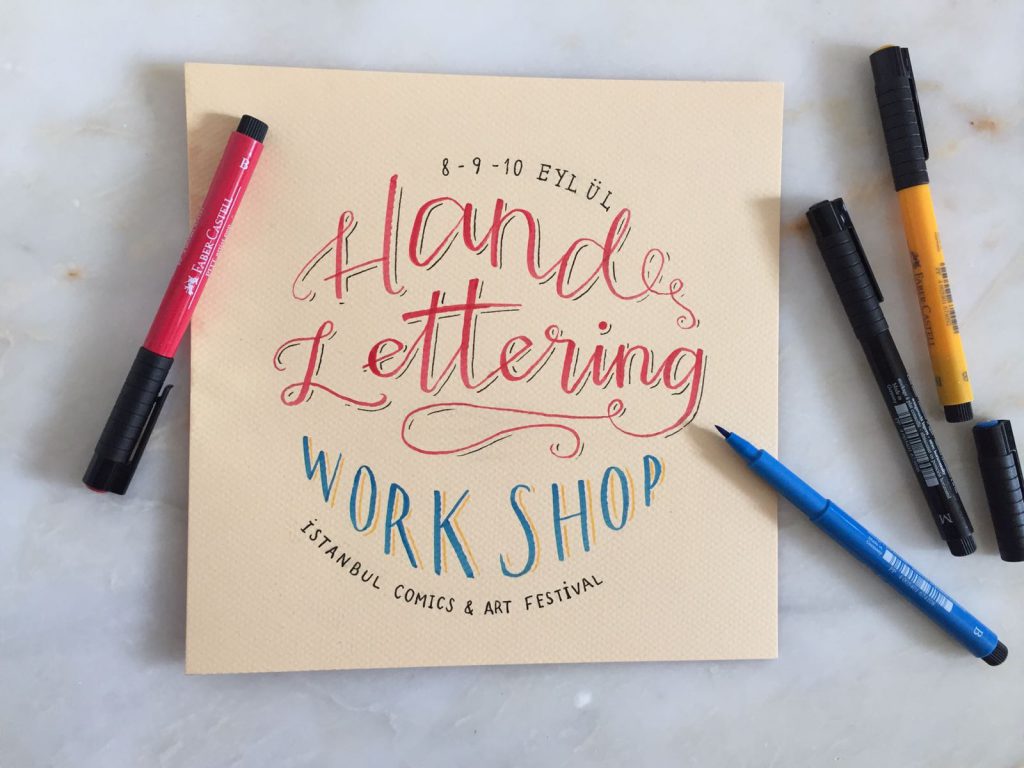 8-9-10 EYLÜL
Hand
Lettering
WORK SHOP
İSTANBUL COMICS & ART FESTİVAL
B
FABER-CASTELL
FABER-CASTELL
M
B
B